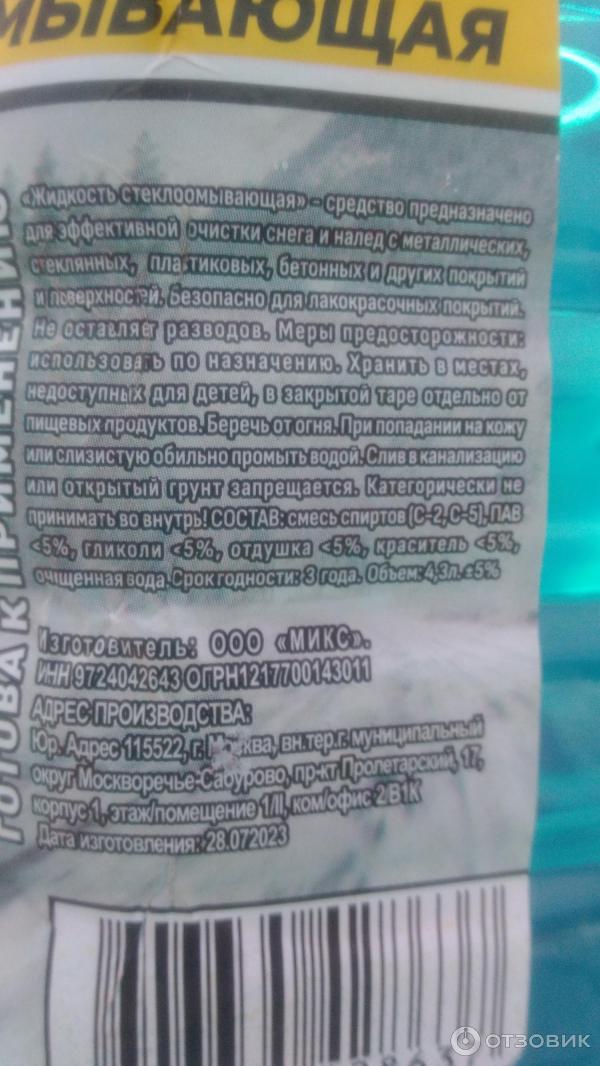 МЫВАЮЩАЯ
ГОТОВА К ПРИМЕНЕНИЮ
«Жидкость стеклоомывающая» - средство предназначено
для эффективной очистки снега и налед с металлических,
стеклянных, пластиковых, бетонных и других покрытий
и поверхностей. Безопасно для лакокрасочных покрытий.
Не оставляет разводов. Меры предосторожности:
использовать по назначению. Хранить в местах,
недоступных для детей, в закрытой таре отдельно от
пищевых продуктов. Беречь от огня. При попадании на кожу
или слизистую обильно промыть водой. Слив в канализацию
или открытый грунт запрещается. Категорически не
принимать во внутрь! СОСТАВ: смесь спиртов (С-2, С-5), ПАВ
<5%, гликоли <5%, отдушка <5%, краситель <5%,
очищенная вода. Срок годности: 3 года. Объем: 4,3л. ±5%
Изготовитель: ООО «МИКС».
ИНН 9724042643 ОГРН1217700143011
АДРЕС ПРОИЗВОДСТВА:
Юр. Адрес 115522, г. Москва, вн.тер.г. муниципальный
округ Москворечье-Сабурово, пр-кт Пролетарский, 17,
корпус 1, этаж/помещение 1/II, ком/офис 2 В1К
Дата изготовления: 28.072023
ОТЗОВИК